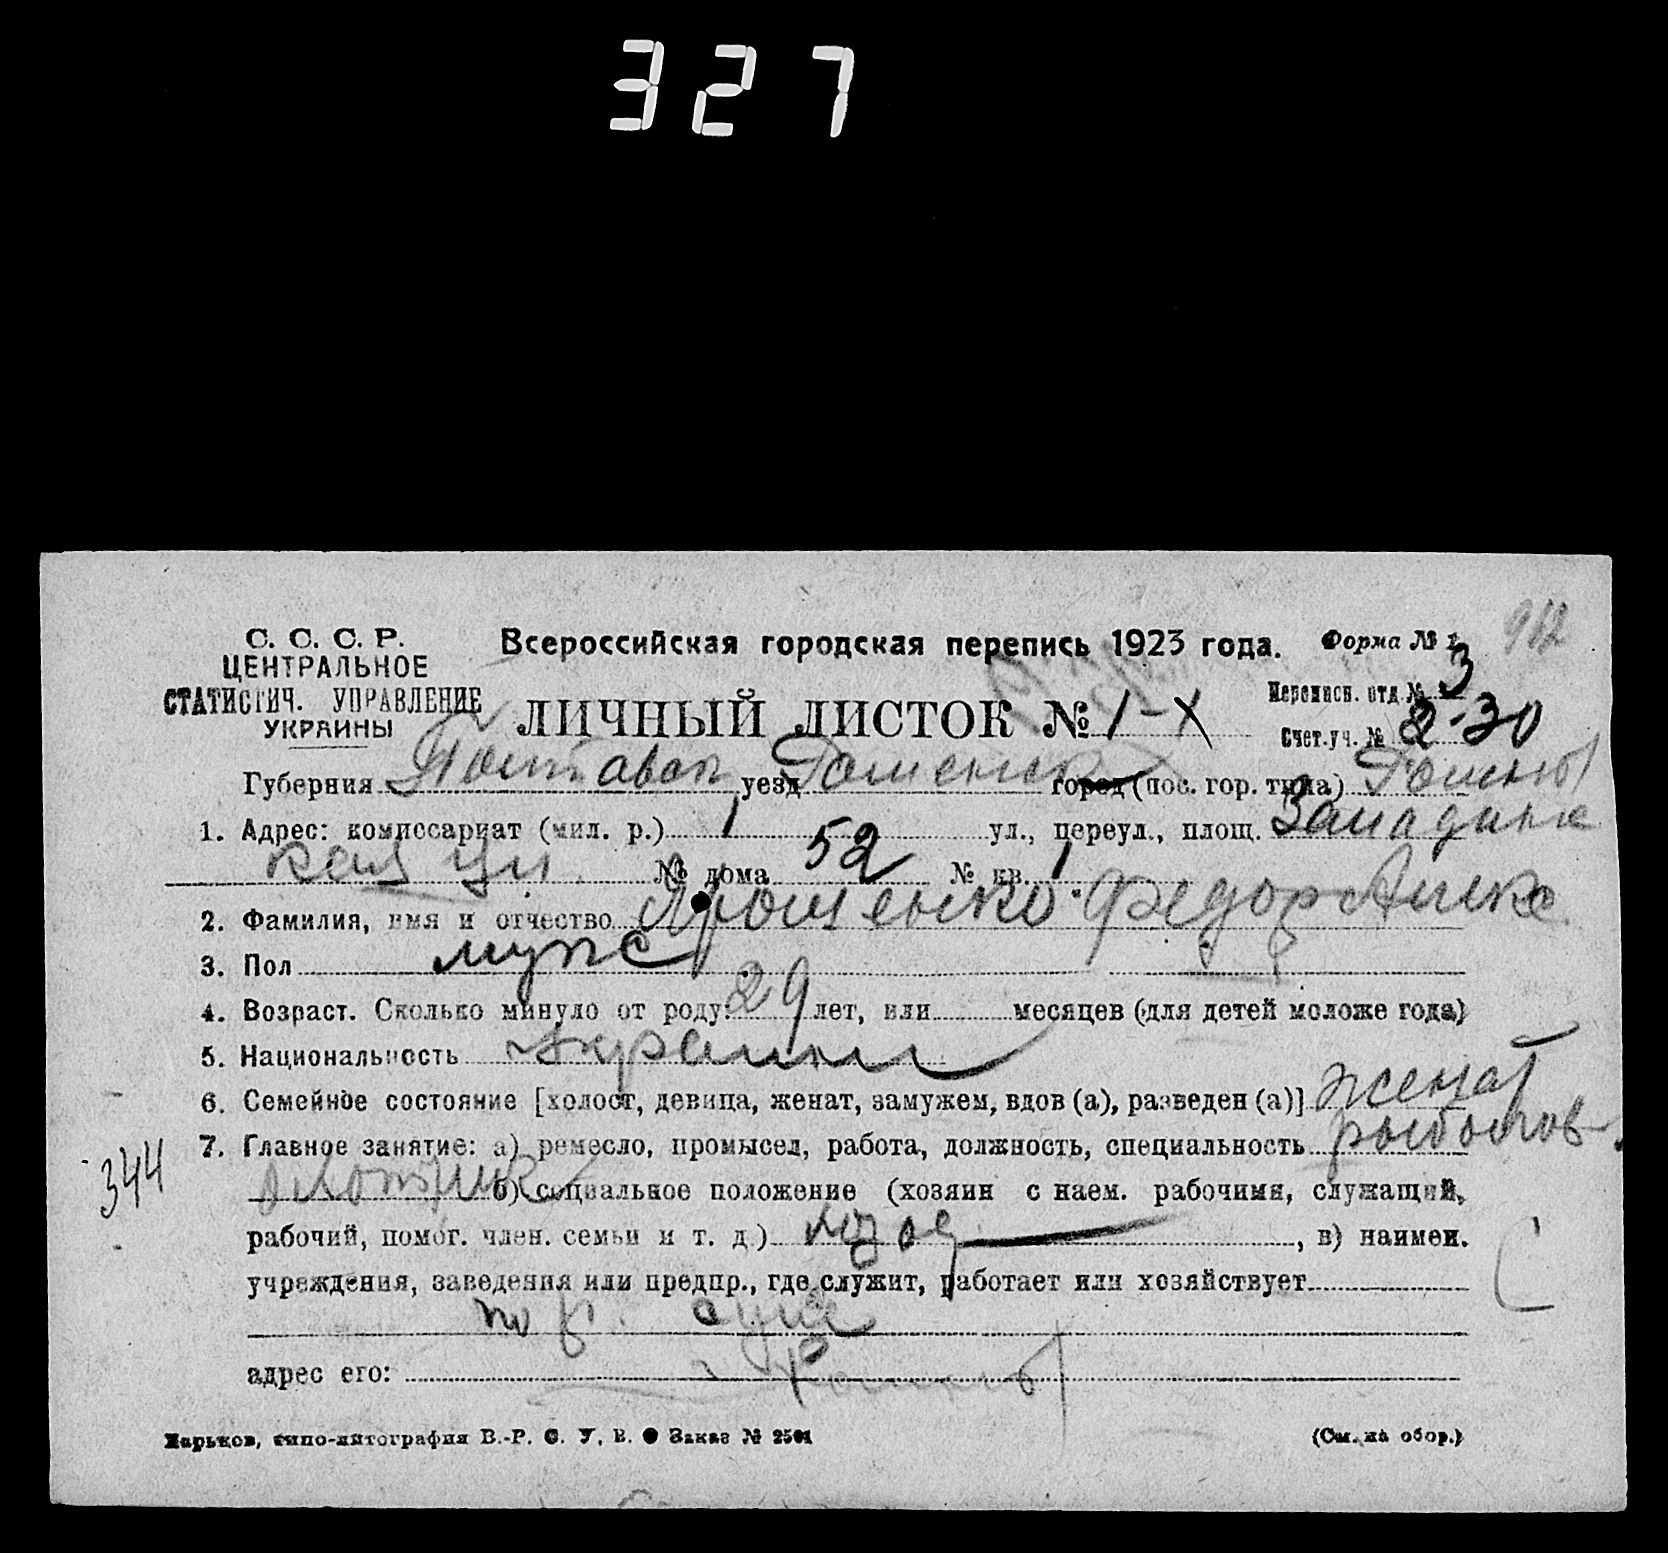 327
912
С. С. С. Р.
ЦЕНТРАЛЬНОЕ
СТАТИСТИЧ. УПРАВЛЕНИЕ
УКРАИНЫ
Всероссийская городская перепись 1923 года.
Форма № 1
ЛИЧНЫЙ ЛИСТОК № 1-X
Переписн. отд. № 3
Счет. уч. № 2-30
Губерния Полтавск уезд Роменск город (пос. гор. типа) Ромны
1. Адрес: комиссариат (мил. р.) 1 ул., переул., площ.
№ дома 52 № кв. 1
2. Фамилия, имя и отчество Ярошенко Федор Алекс
3. Пол муж
4. Возраст. Сколько минуло от роду: 29 лет, или месяцев (для детей моложе года)
5. Национальность украин
6. Семейное состояние [холост, девица, женат, замужем, вдов (а), разведен (а)] женат
7. Главное занятие: а) ремесло, промысел, работа, должность, специальность
344
б) социальное положение (хозяин с наем. рабочими, служащий,
рабочий, помог. член. семьи и т. д.) , в) наимен.
учреждения, заведения или предпр., где служит, работает или хозяйствует
адрес его: Ромны
Харьков, типо-литография В.-Р. С. У. В. Заказ № 2501
(См. на обор.)